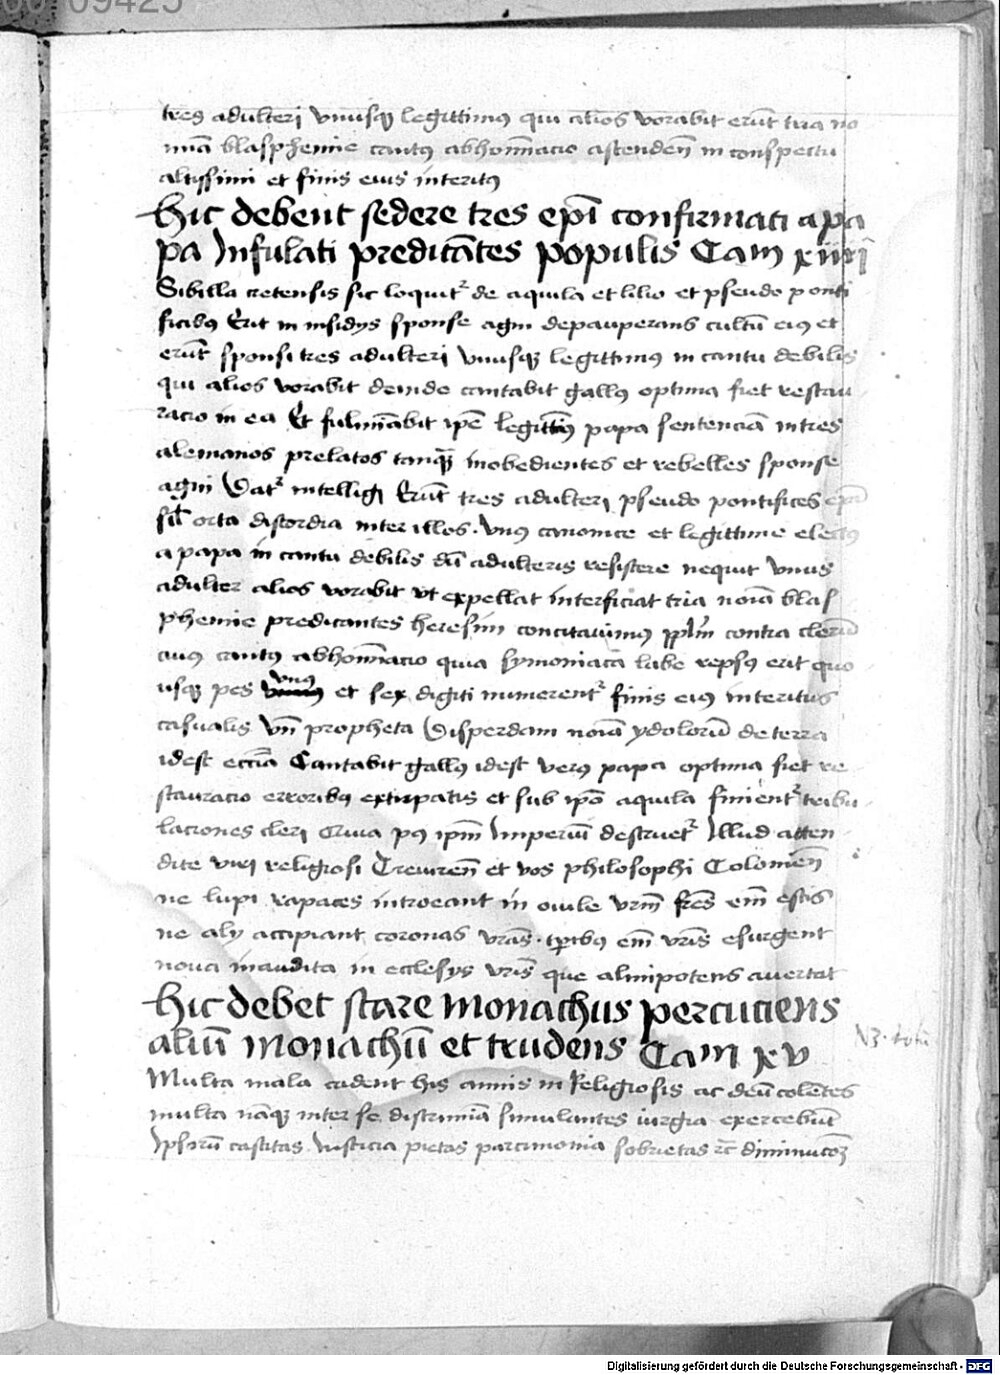 tres adulteri vnusqꝫ legittimꝯ qui alios vorabit erūt tria no
mīa blasphemie cantꝯ abhominacio ascendeñ in conspectu
altissimi et finis eius interitꝯ
Hic debent sedere tres ep̄i confirmati a pa
pa Infulati predicātes populis Cam xiiij
Sibilla cretensis sic loquitᷣ de aquila et lilio et pseudo ponti
ficibꝯ Erit in insidijs sponse agni depauperans cultū eiꝯ et
erūt sponsi tres adulteri vnusqꝫ legittimꝯ in cantu debilis
qui alios vorabit deinde cantabit gallꝯ optima fiet restau
racio in ea Et fulminābit ip̄e legittimꝯ papa sentenciā in tres
alemanos prelatos tanqꝫ inobedientes et rebelles sponse
agni intelligi Erūt tres adulteri pseudo pontifices ep̄i
sil̄ orta discordia inter illos. vnꝯ canonice et legittime electꝯ
a papa in cantu debilis dū adulteris resistere nequit vnus
adulter alios vorabit vt expellat interficiat tria noīa blas
phemie predicantes heresim concitauimꝯ pp̄lm contra clerū
cuiꝯ cantꝯ abhominacio quia symoniaca labe repsꝯ erit quo
usqꝫ pes vnꝯ et sex digiti numerentᷣ finis eiꝯ interitus
casualis vn̄ propheta Disperdam noīa ydolorū de terra
idest ecc̄ia Cantabit gallꝯ idest verꝯ papa optima fiet re
stauracio erroribꝯ extirpatis et sub ip̄o aquila finientᷣ tribu
laciones cleri Cuia pꝯ ip̄m Imperiū destruetᷣ Illud atten
dite viri religiosi Treuireñ et vos philosophi Colonieñ
ne lupi rapaces introeant in ouile vr̄m fr̄es em̄ estis
ne alij accipiant coronas vr̄as. tp̄ribꝯ em̄ vr̄is esurgent
noua inaudita in ecclesijs vr̄is que alm̄ipotens auertat
Hic debet stare monachus percuciens
aliū monachū et trudens Cam xv
N3. totū
Multa mala cadent his annis in Religiosis ac deū colētes
multa nāqꝫ inter se discrimīa simulantes iurgia exercebūt
Ipsorū castitas Iusticia pietas parcimonia sobrietas zc̄ diminucōꝫ
Digitalisierung gefördert durch die Deutsche Forschungsgemeinschaft - DFG